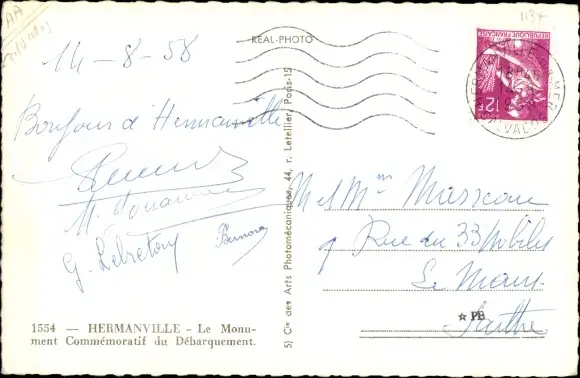 1134
AA
REAL-PHOTO
14-8-58
RÉPUBLIQUE FRANÇAISE
12F
POSTES
CALVADOS
Bonjour d'Hermanville
G. Lebreton
Bernard
M et Mme Marceau
9 Rue du 33 Mobiles
Le Mans
Sarthe
☆ PB
1554 — HERMANVILLE - Le Monu-
ment Commémoratif du Débarquement.
5) Cie des Arts Photomécaniques, 44, r. Letellier, Paris-15